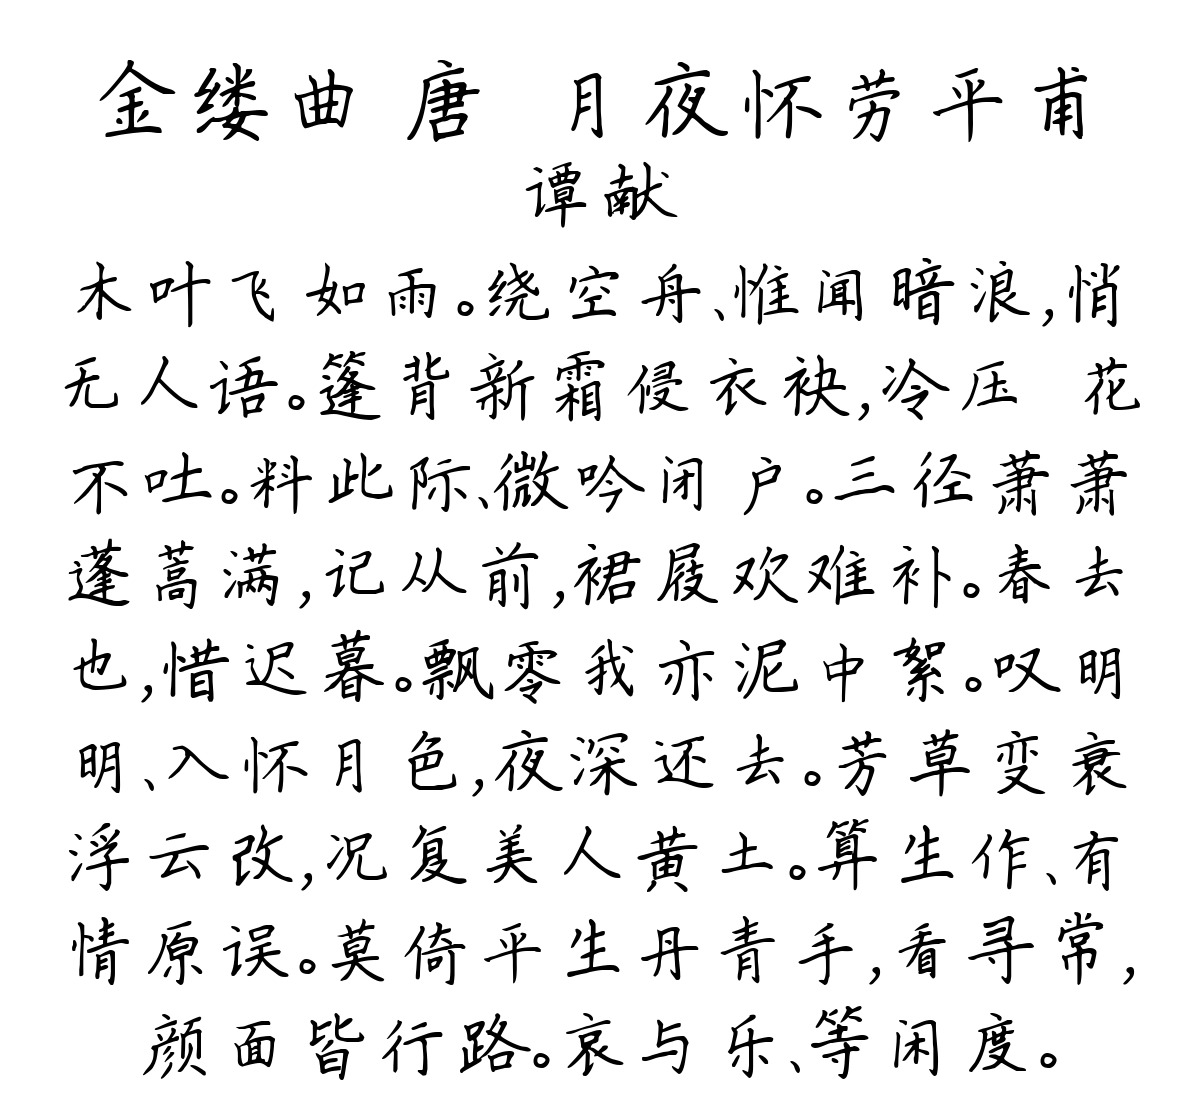 金缕曲 唐 月夜怀劳平甫
谭献
木叶飞如雨。绕空舟、惟闻暗浪,悄
无人语。篷背新霜侵衣袂,冷压 花
不吐。料此际、微吟闭户。三径萧萧
蓬蒿满,记从前,裙屐欢难补。春去
也,惜迟暮。飘零我亦泥中絮。叹明
明、入怀月色,夜深还去。芳草变衰
浮云改,况复美人黄土。算生作、有
情原误。莫倚平生丹青手,看寻常,
颜面皆行路。哀与乐、等闲度。